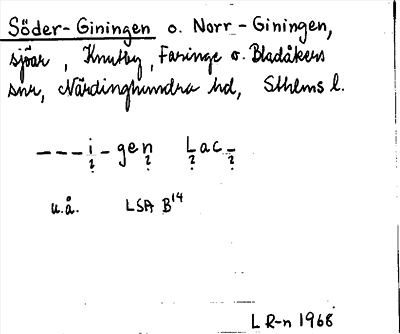 Söder-Giningen o. Norr-Giningen,
sjöar, Knutby, Faringe o. Bladåkers
snr, Närdinghundra hd, Sthlms l.
---i-gen Lac-
? ? ? ? ?
u.å. LSA B14
L R-n 1968